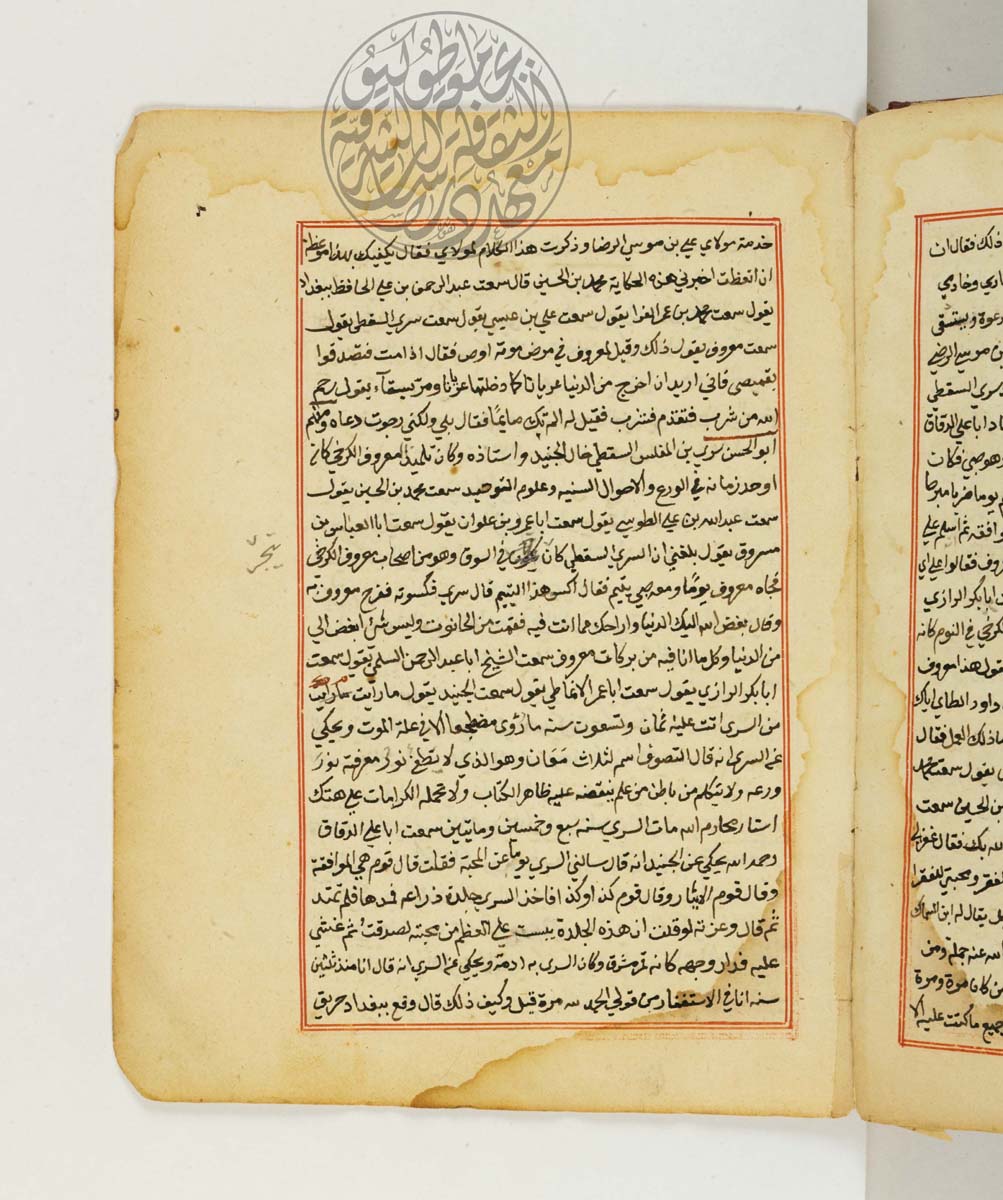 خدمة مولاي علي بن موسي الرضا وذكرت هذا الكلام لمولاي فقال يكفيك بهذا موعظة
ان اتعظت اخبرني بهذه الحكاية محمد بن الحسين قال سمعت عبد الرحمن بن علي الحافظ ببغداد
يقول سمعت محمد بن عمر الفرا يقول سمعت علي بن عيسي يقول سمعت سري السقطي يقول
سمعت معروف يقول ذلك وقيل لمعروف في مرض موته اوص فقال اذا مت فتصدقوا
بقميصي فاني اريد ان اخرج من الدنيا عريانا كما دخلتها عريانا ومر بسقآء يقول رحم
الله من شرب فتقدم فشرب فقيل له الم تك صايمًا فقال بلي ولكني رجوت دعاه ومنهم
ابو الحسن سري بن المغلس السقطي خال الجنيد واستاذه وكان تلميذ المعروف الكرخي كان
اوحد زمانه في الورع والاحوال السنيه وعلوم التوحيد سمعت محمد بن الحسين يقول
سمعت عبد الله بن علي الطوسي يقول سمعت ابا عمرو بن علوان يقول سمعت ابا العباس بن
مسروق يقول بلغني ان السري السقطي كان في السوق وهو من اصحاب معروف الكرخي
يتجر
فجاه معروف يومًا ومعه صبي يتيم فقال اكس هذا اليتيم قال سري فكسوته ففرح معروف به
وقال بغض الله اليك الدنيا واراحك مما انت فيه فقمت من الحانوت وليس شئ ابغض الي
من الدنيا وكل ما انا فيه من بركات معروف سمعت الشيخ ابا عبد الرحمن السلمي يقول سمعت
ابا بكر الرازي يقول سمعت ابا عمر الانماطي يقول سمعت الجنيد يقول ما رايت
من السري اتت عليه ثمان وتسعون سنه ما رؤى مضطجعا الا في علة الموت ويحكي
عن السري انه قال التصوف اسم لثلاث معان وهو الذي لا يطفئ نور معرفته نور
ورعه ولا يتكلم من باطن من علم ينقضه عليه ظاهر الكتاب ولا تحمله الكرامات علي هتك
استار محارم الله مات السري سنه سبع وخمسين ومايتين سمعت ابا علي الدقاق
رحمه الله يحكي عن الجنيد انه قال سالني السري يوما عن المحبة فقلت قال قوم هي الموافقة
وقال قوم الايثار وقال قوم كذا وكذا فاخذ السري جلدة ذراعه فمدها فلم تمتد
ثم قال وعزته لو قلت ان هذه الجلدة يبست علي العظم من محبته لصدقت ثم غشي
عليه فدار وجهه كانه قمر مشرق وكان السري به ادمة ويحكي عن السري انه قال انا منذ ثلثين
سنه انا في الاستغفار من قولي الحمد لله مرة قيل وكيف ذلك قال وقع ببغداد حريق